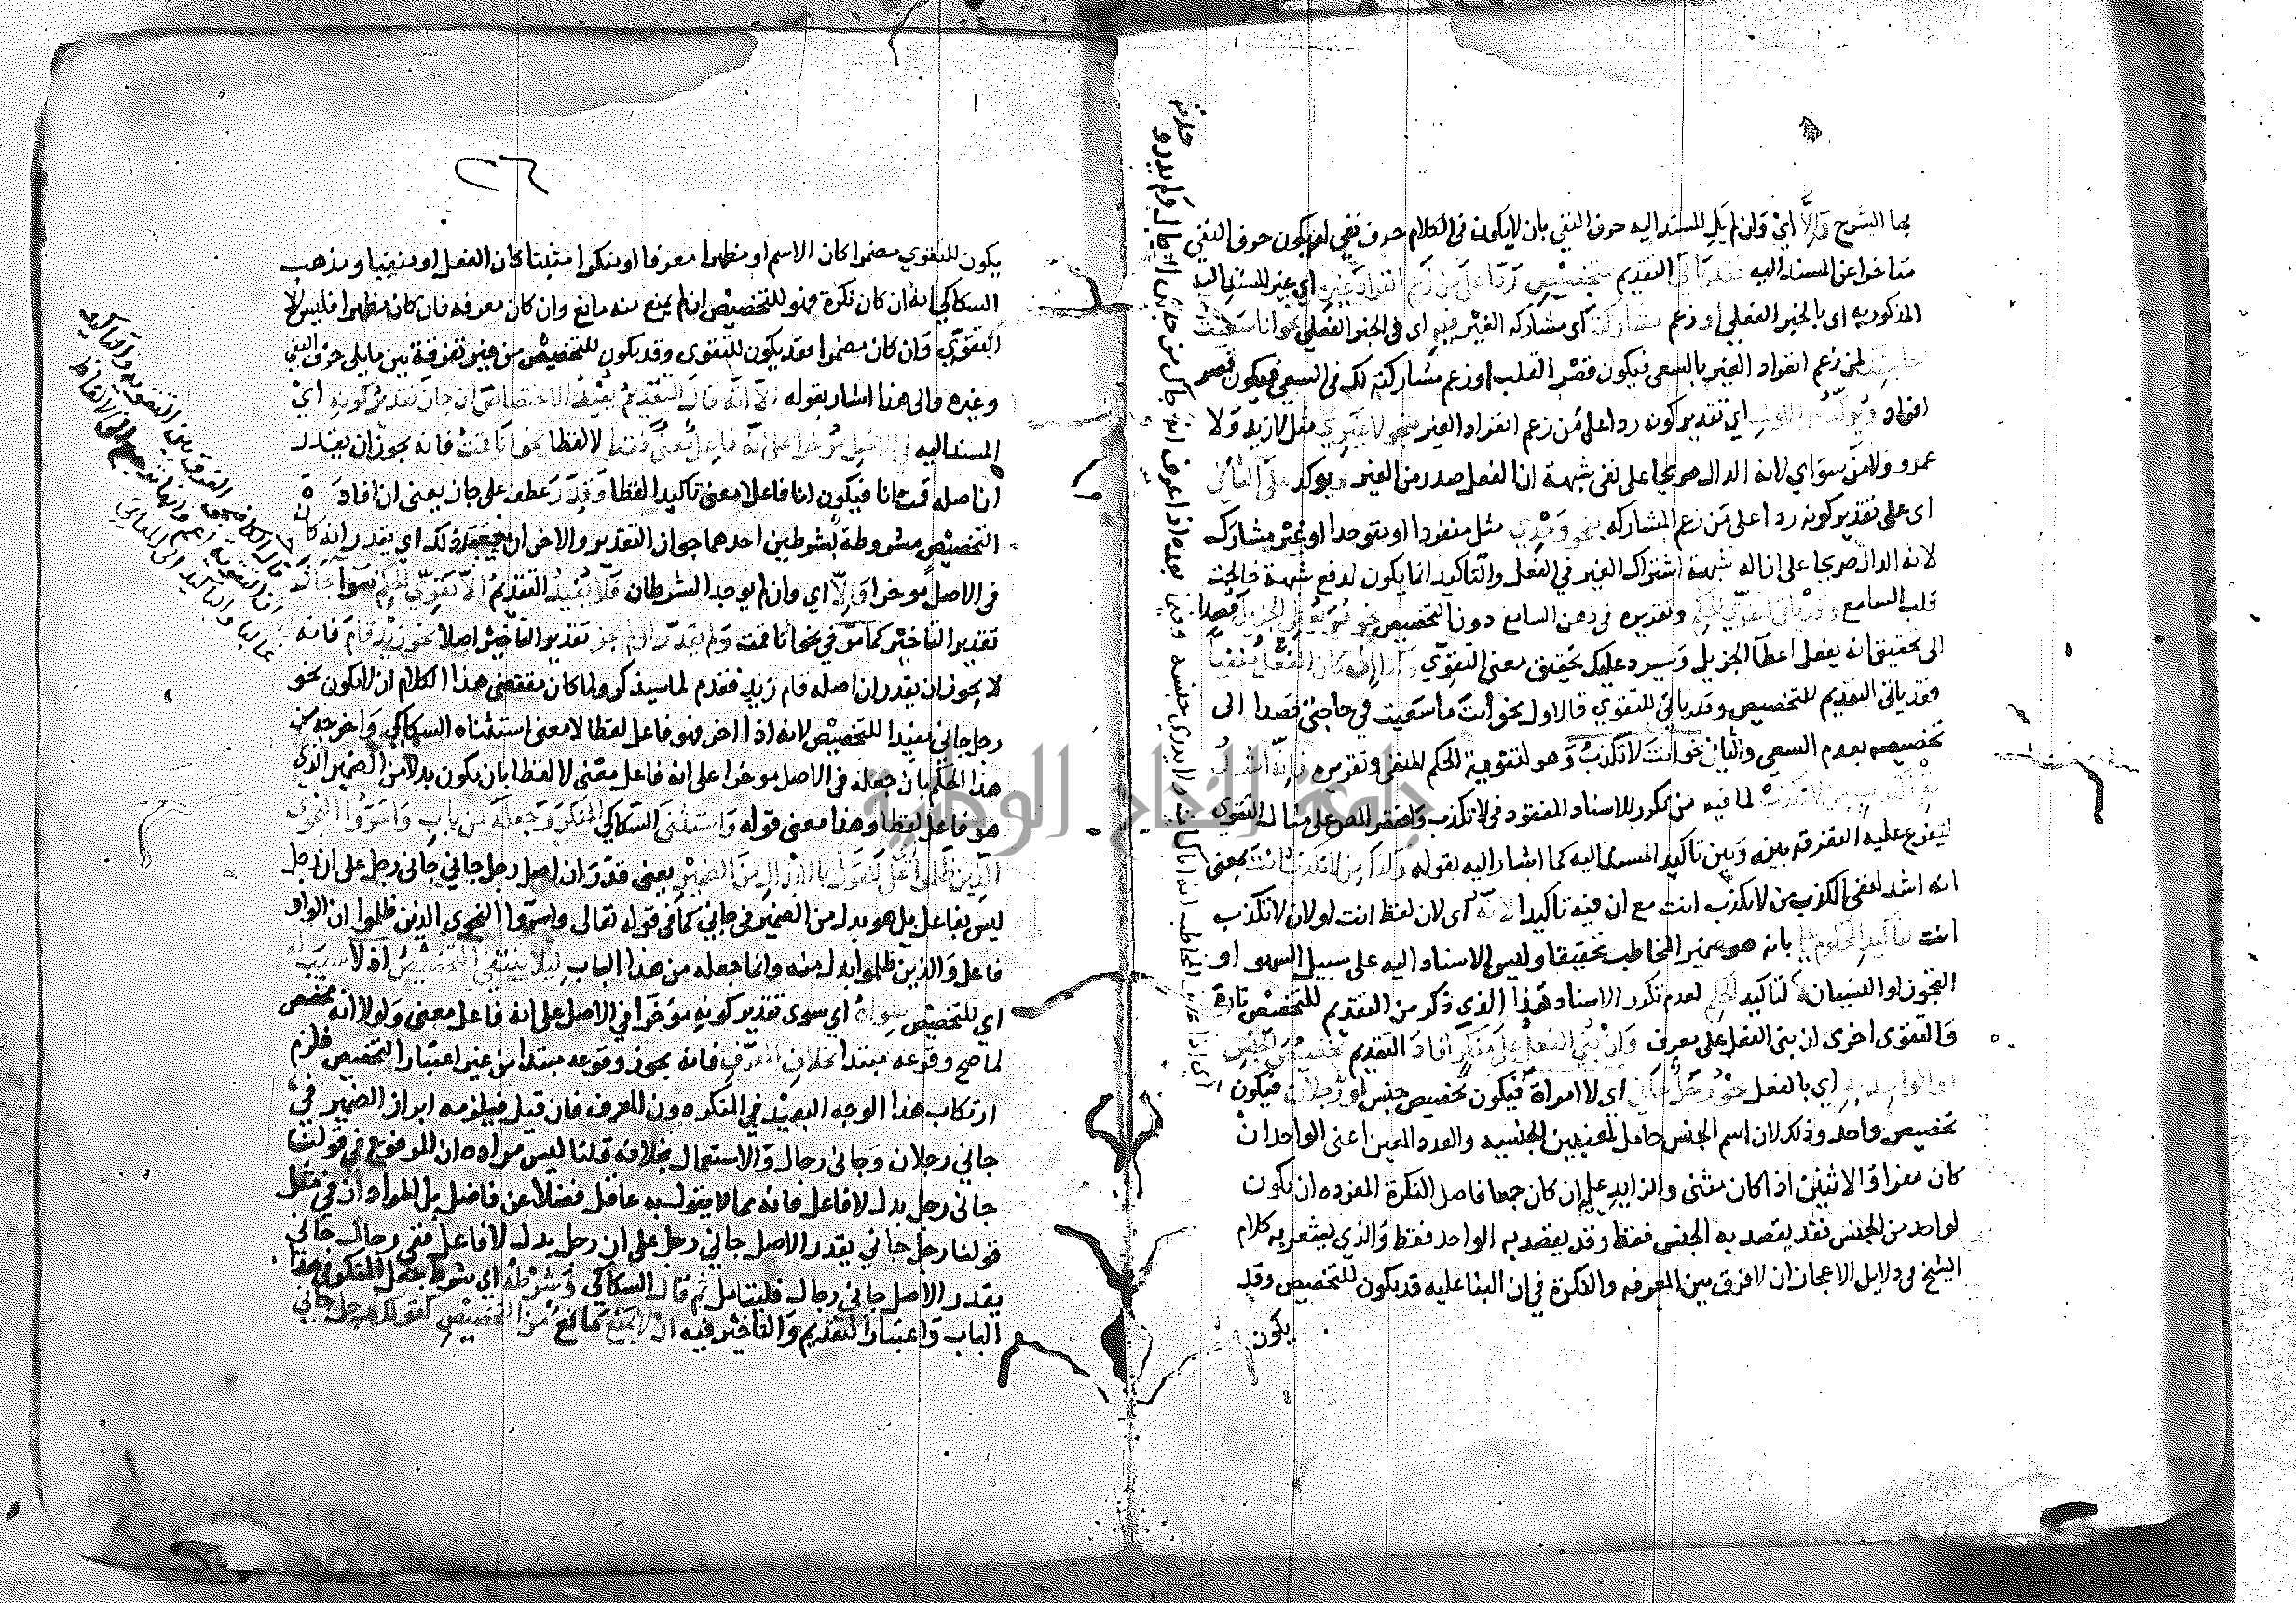 بها الشرح وَإِلَّا اي وان لم يَلِ المسند اليه حرف النفي بان لا يكون في الكلام حرف نفي او يكون حرف النفي
متاخرا عن المسند اليه فقد ياتى التقديم للتخصيص ردّا على من زعم انفراد غيره اي غير المسند اليه
المذكور به اي بالخبر الفعلي او زعم مشاركته اى مشاركة الغير فيه اى في الخبر الفعلي نحو انا سعيت
في حاجتك لمن زعم انفراد الغير بالسعى فيكون قصر القلب او زعم مشاركته لك في السعى فيكون قصر
افراد ويؤكد على الاول اي تقدير كونه ردا على من زعم انفراد الغير بنحو لا غيري مثل لا زيد ولا
عمرو ولا من سواي لانه الدال صريحا على نفى شبهة ان الفعل صدر من الغير ويوكد على الثاني
اى على تقدير كونه ردا على من زعم المشاركه بنحو وحدي مثل منفردا او متوحدا او غير مشارك
لانه الدال صريحا على ازاله شبهة اشتراك الغير في الفعل والتاكيد انما يكون لدفع شبهة خالجت
قلب السامع وقد ياتى لتقوي الحكم وتقريره في ذهن السامع دون التخصيص نحو هو يعطى الجزيل قصدا
الى تحقيق انه يفعل اعطآ الجزيل وسيرد عليك تحقيق معنى التقوّي وكذا اذا كان الفعل منفيا
فقد ياتى التقديم للتخصيص وقد ياتى للتقوي فالاول نحو أنت ما سعيت في حاجتي قصدا الى
تخصيصه بعدم السعي والثانى نحو انت لا تكذب وهو لتقوية الحكم المنفى وتقريره فانه اشد
لنفى الكذب من لا تكذب لما فيه من تكرر الاسناد المفقود في لا تكذب واقتصر المص على مثال التقوي
ليفرع عليه التفرقة بينه وبين تاكيد المسند اليه كما اشار اليه بقوله وكذا من لا تكذب انت يعنى
انه اشد لنفى الكذب من لا تكذب انت مع ان فيه تاكيدا لانه اى لان لفظ انت او لان لا تكذب
انت لتاكيد المحكوم عليه بانه هو ضمير المخاطب تحقيقا وليس الاسناد اليه على سبيل السهو او
التجوز او النسيان لا لتاكيد الحكم لعدم تكرر الاسناد هذا الذي ذكر من التقديم للتخصيص تارة
وَالتقوى اخرى ان بنى الفعل على معرف وَان بُني الفعل على منكر افاد التقديم تخصيص الجنس
او الواحد به اي بالفعل نحو رجل جاءني اي لا امراة فيكون تخصيص جنس او رجلان فيكون
تخصيص واحد وذلك لان اسم الجنس حامل لمعنيين الجنسيه والعدد المعين اعنى الواحد ان
كان مفردا والاثنين اذا كان مثنى والزايد عليه ان كان جمعا فاصل النكرة المفرده ان يكون
لواحد من الجنس فقد يقصد به الجنس فقط وقد يقصد به الواحد فقط وَالذي يشعر به كلام
الشيخ في دلايل الاعجاز ان لا فرق بين المعرفه والنكرة في ان البنا عليه قد يكون للتخصيص وقد
يكون
٢٦
يكون للتقوي مضمرا كان الاسم او مظهرا معرفا او منكرا مثبتا كان الفعل او منفيا ومذهب
السكاكي انه ان كان نكرة فهو للتخصيص ان لم يمنع منه مانع وان كان معرفه فان كان مظهرا فليس الا
للتقوي وان كان مضمرا فقد يكون للتقوى وقد يكون للتخصيص من غير تفرقة بين ما يلى حرف النفي
وغيره والى هذا اشار بقوله الا انه قال التقديم يفيد الاختصاص ان جاز تقدير كونه اي
المسند اليه في الاصل مؤخرا على انه فاعل معنى فقط لا لفظا نحو انا قمت فانه يجوز ان يقدر
ان اصله قمت انا فيكون انا فاعلا معنى تاكيدا لفظا وَقدِّر عطف على جاز يعنى ان افادة
التخصيص مشروطة بشرطين احدهما جواز التقدير والاخر ان يعتقد ذلك اي يقدر انه كان
فى الاصل موخرا وَإِلّا اي وان لم يوجد الشرطان فَلا يُفيد التقديمُ الّا تقوّي الحكم سوآ جاز
تقدير التاخير كما مرّ في نحو انا قمت وَلم يقدّر او لم يجز تقدير التاخير اصلا نحو زيد قام فانه
لا يجوز ان يقدر ان اصله قام زيد فقدم لما سيذكر ولما كان مقتضى هذا الكلام ان لا يكون نحو
رجل جاني مفيدا للتخصيص لانه اذا اخر فهو فاعل لفظا لا معنى استثناه السكاكي وَاخرجه من
هذا الحكم بان جعله في الاصل موخرا على انه فاعل معنى لا لفظا بان يكون بدلا من الضمير الذي
هو فاعل لفظا وهذا معنى قوله وَاستثنى السكاكي المنكر وَجعله من باب وَاسَرُّوا النجوى
الذين ظلموا اى على القول بالابدال من الضمير يعنى قدّر ان اصل رجل جاني جاني رجل على ان رجل
ليس بفاعل بل هو بدل من الضمير في جاني كما في قوله تعالى واسروا النجوى الذين ظلموا ان الواو
فاعل وَالذين ظلموا بدل منه وانما جعله من هذا الباب ليلا ينتفى التخصيص اذ لا سبب له
اي للتخصيص سواه اي سوى تقدير كونه مؤخرا في الاصل على انه فاعل معنى وَلولا انه مخصص
لما صح وقوعه مبتدا بخلاف المعرّف فانه يجوز وقوعه مبتدا من غير اعتبار التخصيص فلزم
ارتكاب هذا الوجه البعيد في المنكر دون المعرف فان قيل فيلزمه ابراز الضمير في
جاني رجلان وَجانى رجال وَالاستعمال بخلافه قلنا ليس مراده ان المرفوع في قولنا
جانى رجل بدل لا فاعل فانه مما لا يقول به عاقل فضلا عن فاضل بل المراد ان في مثل
قولنا رجل جاني يقدر الاصل جاني رجل على ان رجل بدل لا فاعل ففى رجال جاني
يقدر الاصل جاني رجال فليتامل ثم قال السكاكي وَشرطه اي شرط جعل المنكر من هذا
الباب وَاعتبار التقديم وَالتاخير فيه ان لا يمنع مانع من التخصيص كقولك رجل جاني